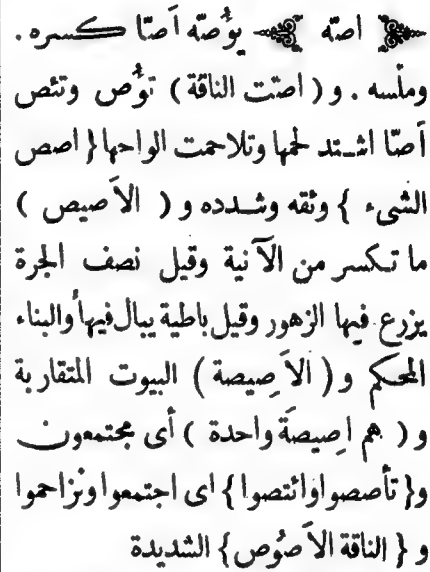 اصّه يؤُصّه اَصّا كسره .
وملّسه . و ( اصّت الناقة ) توُّص وتئص
اَصّا اشتد لحمها وتلاحمت الواحها { اصص
الشىء } وثقه وشدده و ( الاَصيص )
ما تكسر من الآنية وقيل نصف الجرة
يزرع فيها الزهور وقيل باطية يبال فيها والبناء
المحكم و ( الاَصِيصة ) البيوت المتقاربة
و ( هم اصِيصَة واحدة ) أى مجتمعون
و { تأصصوا وائتصوا } اى اجتمعوا وتزاحموا
و { الناقة الاَصُوص } الشديدة